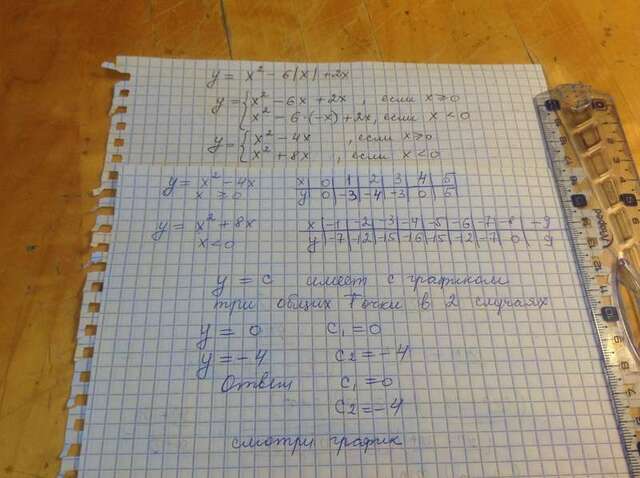 y = x² - 6|x| + 2x
y = { x² - 6x + 2x , если x ≥ 0
x² - 6·(-x) + 2x, если x < 0
y = { x² - 4x , если x ≥ 0
x² + 8x , если x < 0
y = x² - 4x
x ≥ 0
x | 0 | 1 | 2 | 3 | 4 | 5
y | 0 | -3 | -4 | -3 | 0 | 5
y = x² + 8x
x < 0
x | -1 | -2 | -3 | -4 | -5 | -6 | -7 | -8 | -9
y | -7 | -12 | -15 | -16 | -15 | -12 | -7 | 0 | 9
y = c имеет с графиком
три общих точки в 2 случаях
y = 0 c₁ = 0
y = -4 c₂ = -4
Ответ c₁ = 0
c₂ = -4
смотри график